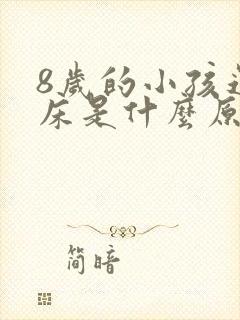 8歲的小孩
床是什麼原
简暗